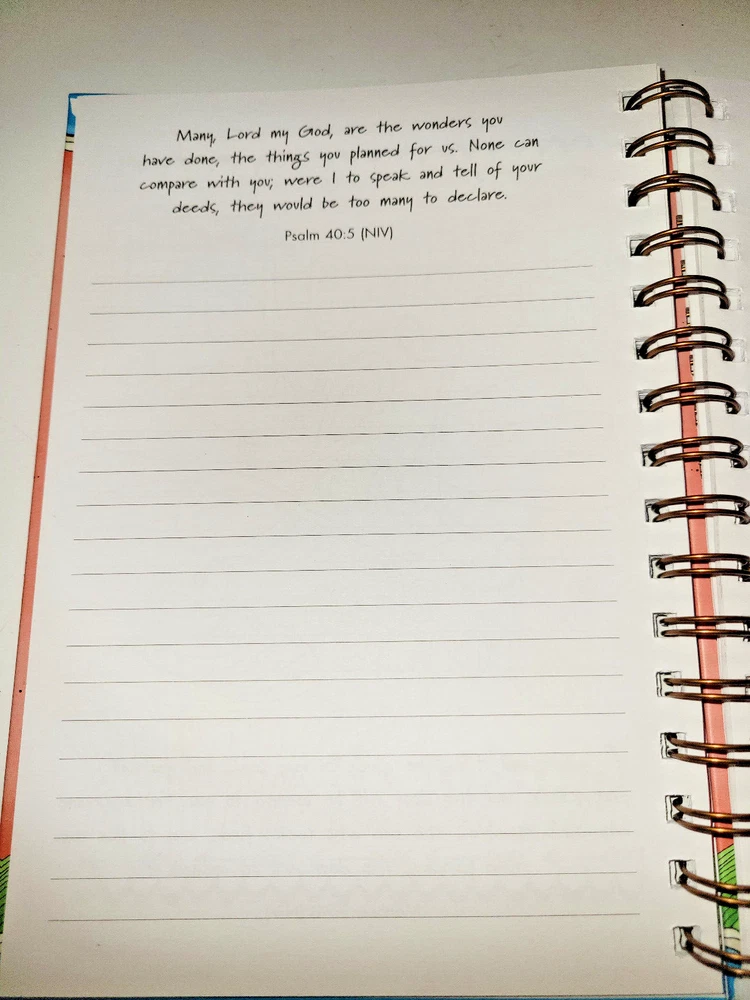 Many, Lord my God, are the wonders you
have done, the things you planned for us. None can
compare with you; were I to speak and tell of your
deeds, they would be too many to declare.
Psalm 40:5 (NIV)